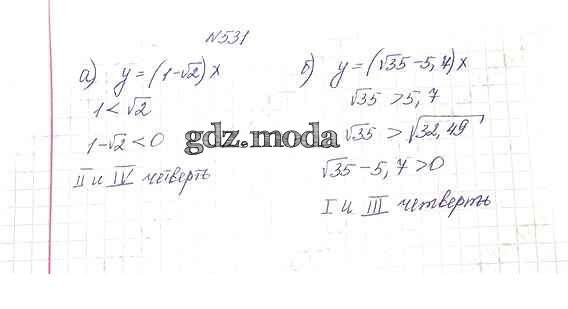 №531
а) y = (1-√2)x
1 < √2
1-√2 < 0
II и IV четверть
б) y = (√35 - 5,7)x
√35 > 5,7
√35 > √32,49
√35 - 5,7 > 0
I и III четверть
gdz.moda